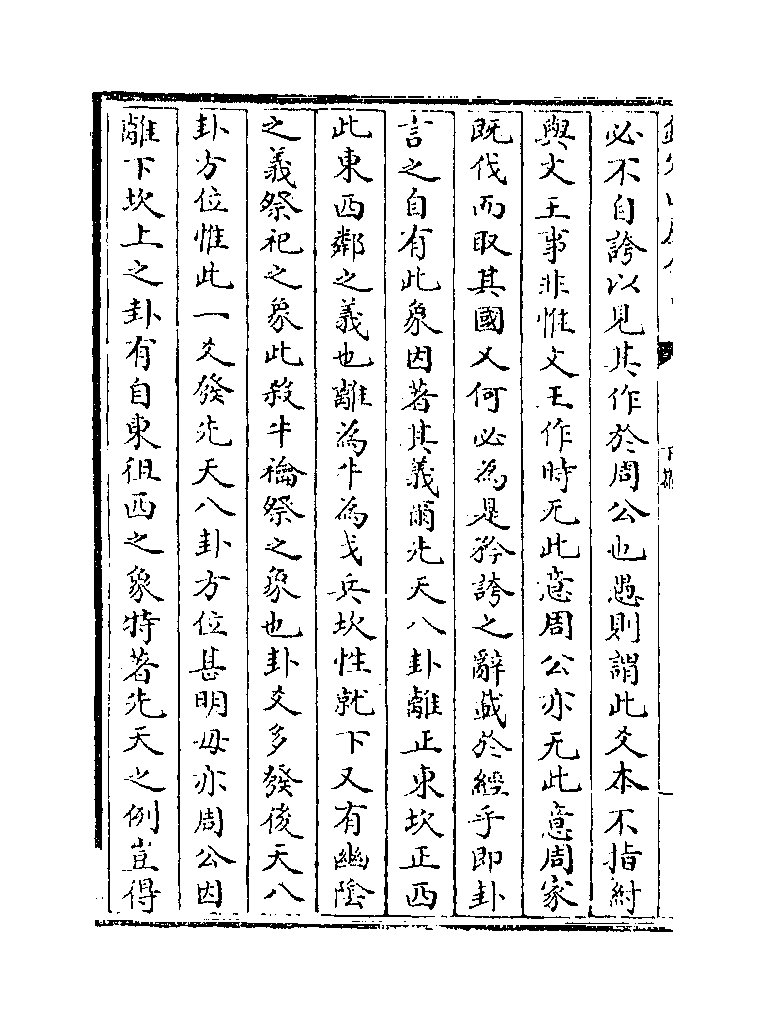 必不自誇以見其作於周公也愚則謂此爻本不指紂
與文王事非惟文王作時无此意周公亦无此意周家
既伐而取其國又何必為是矜誇之辭載於經乎即卦
言之自有此象因著其義爾先天八卦離正東坎正西
此東西鄰之義也離為牛為戈兵坎性就下又有幽陰
之義祭祀之象此殺牛禴祭之象也卦爻多發後天八
卦方位惟此一爻發先天八卦方位甚明毋亦周公因
離下坎上之卦有自東徂西之象特著先天之例豈得